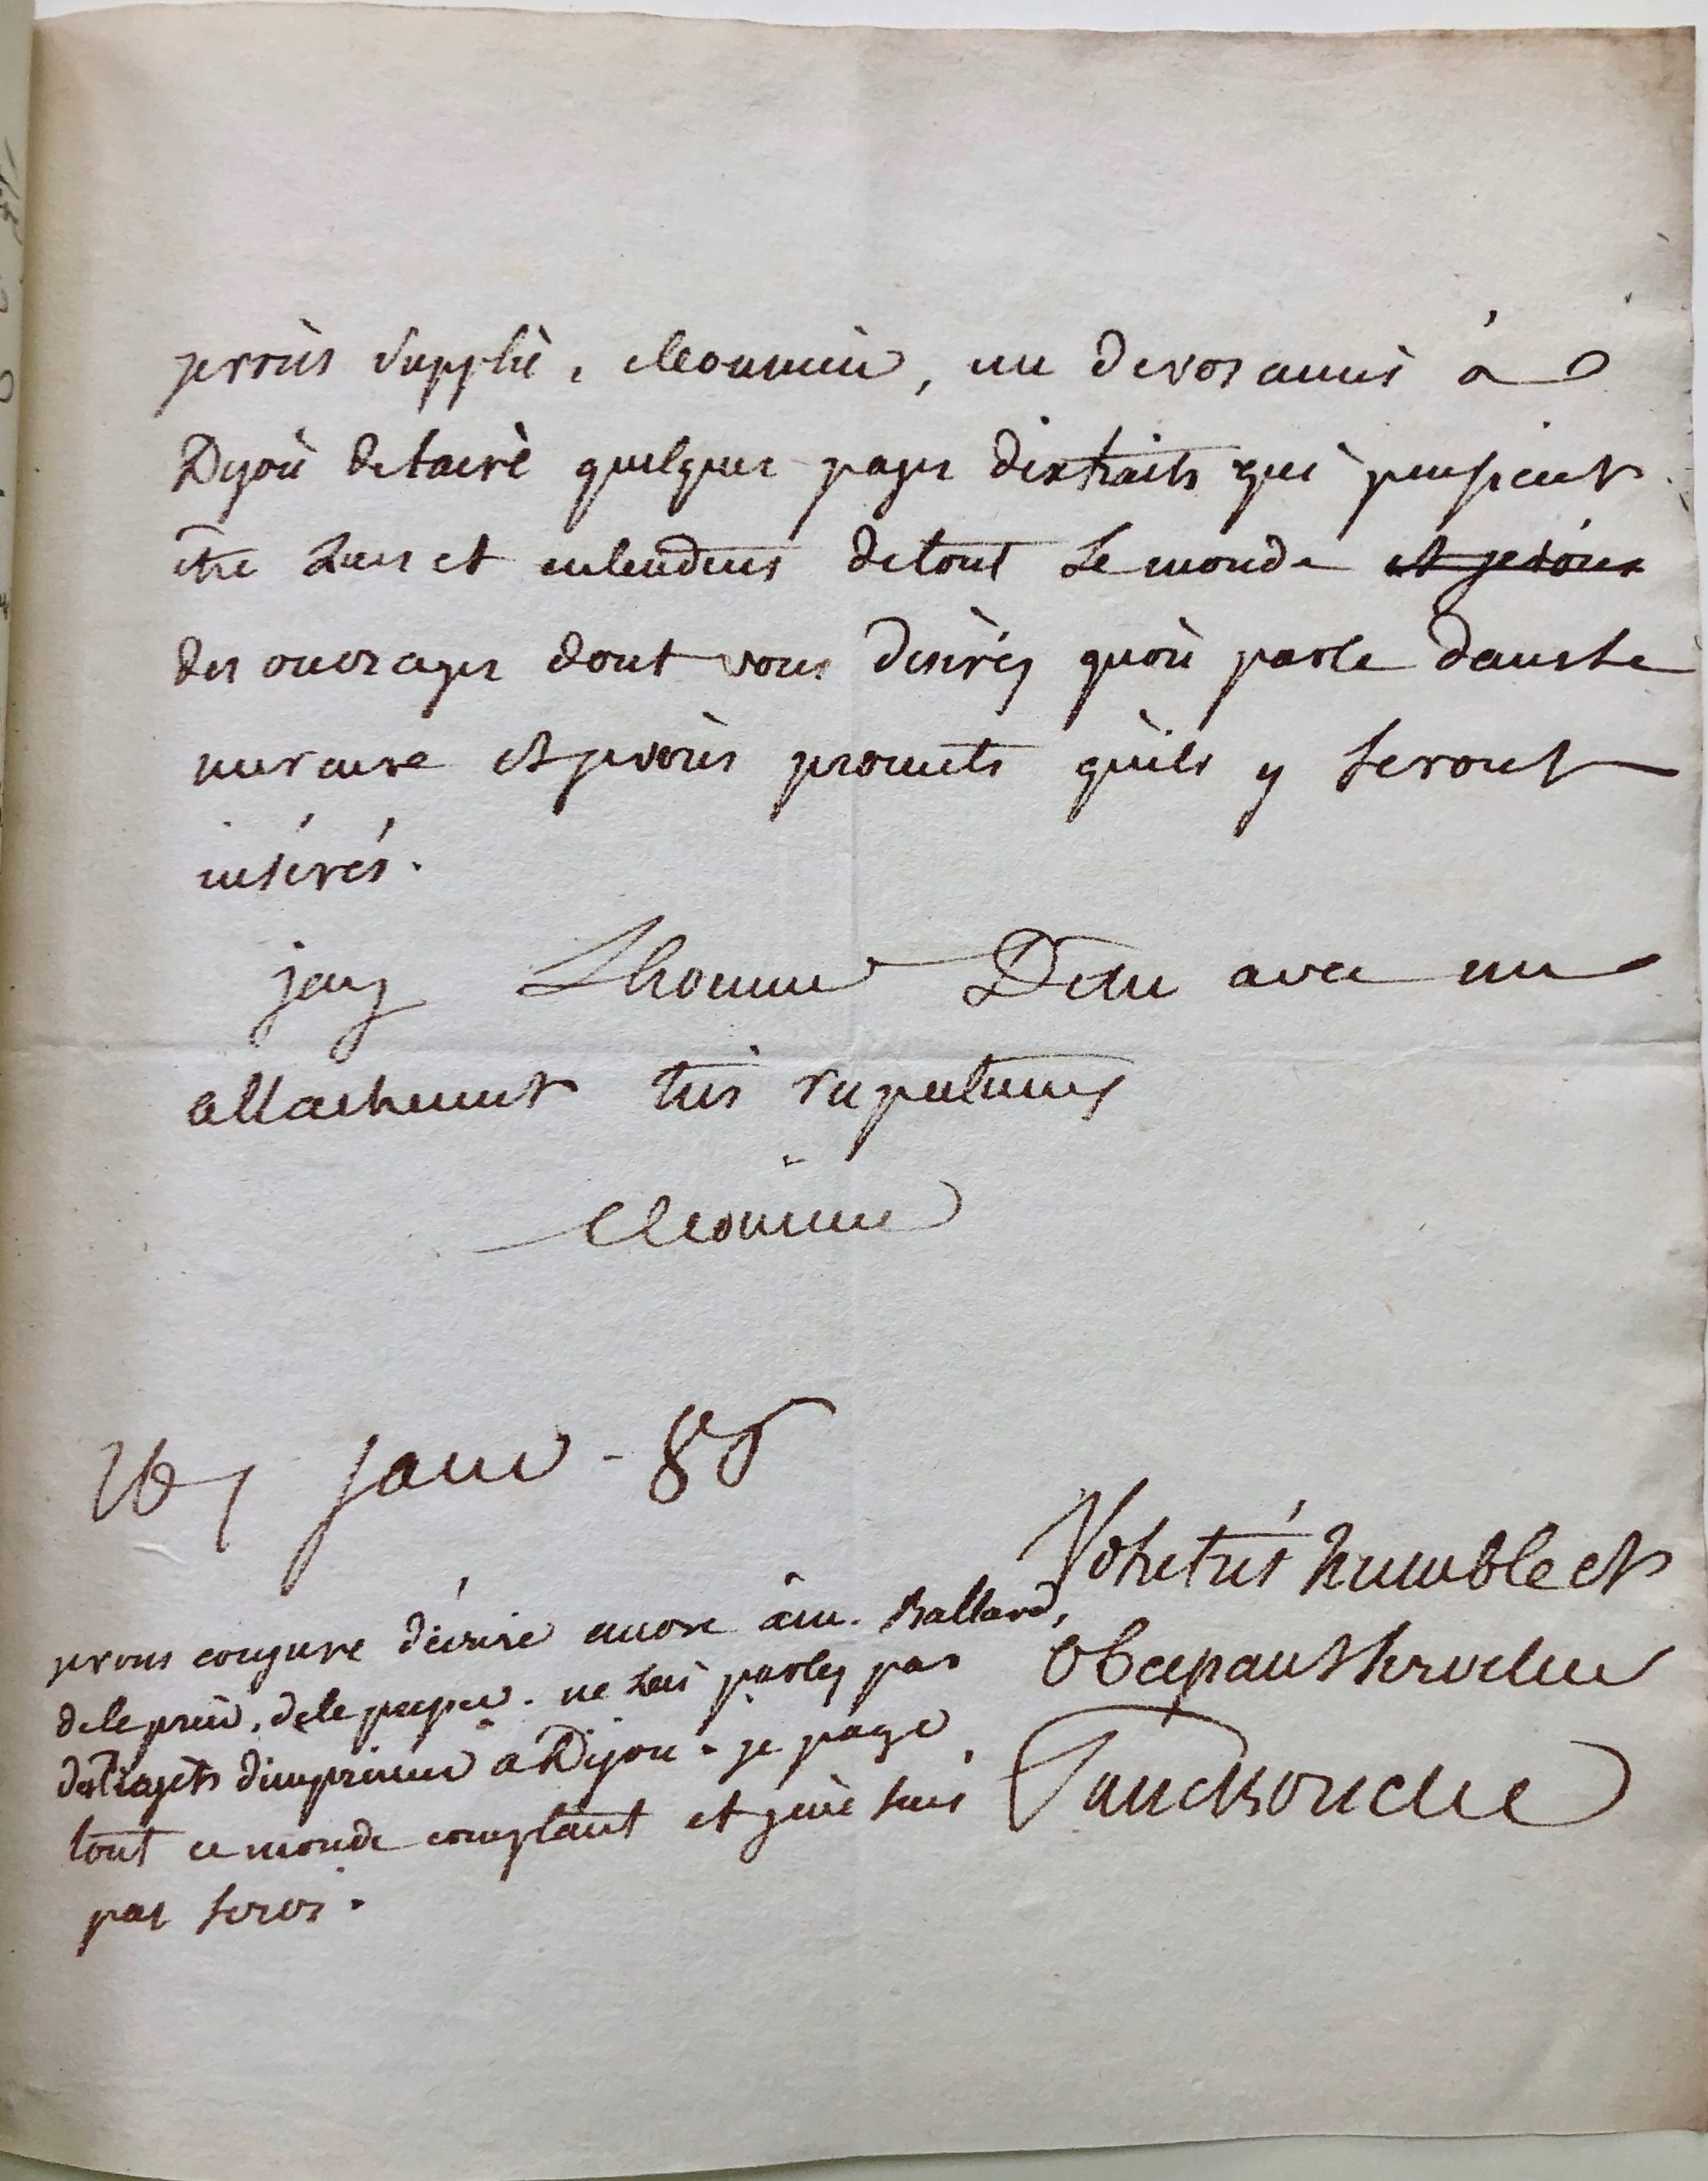 je vous supplie, Monsieur, un de vos amis à
Dijon de faire quelques pages d'extraits qui puissent
être lues et entendues de tout le monde et je vous
des ouvrages dont vous desirés qu'on parle dans le
mercure et je vous promets qu'ils y seront
insérés.
jay L'honneur D'etre avec un
attachement très respectueux
Monsieur
16 janv - 86
Votre très humble et
obeissant serviteur
Panckoucke
je vous conjure d'écrire encore à m. Ballard,
de le prier, de le
des d'imprimer à Dijon - je paye
tout ce monde comptant et je ne suis
pas servi.